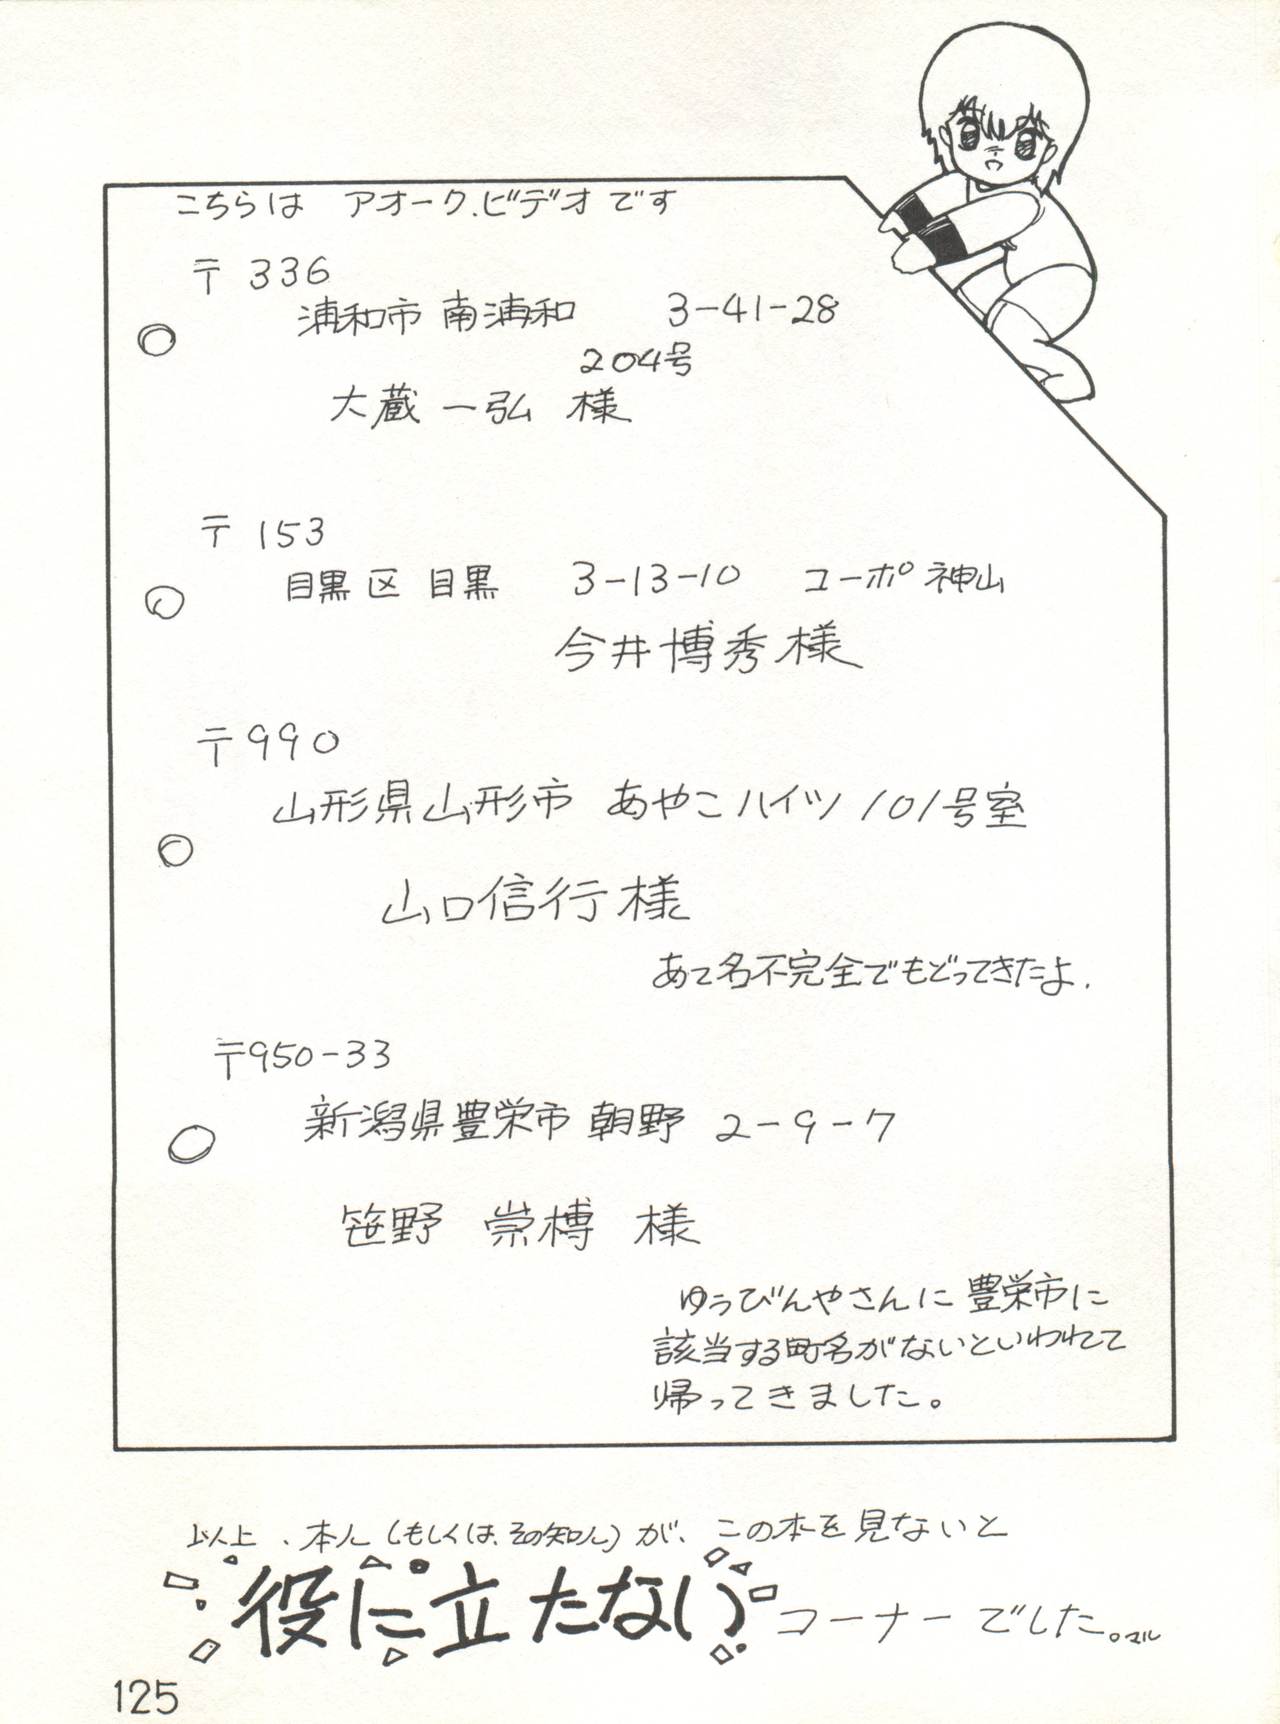 こちらは アオーク.ビデオです
〒336
浦和市 南浦和 3-41-28
204号
大蔵 一弘 様
〒153
目黒区 目黒 3-13-10 コーポ神山
今井博秀様
〒990
山形県山形市 あやこハイツ101号室
山口信行様
あて名不完全でもどってきたよ.
〒950-33
新潟県豊栄市 朝野 2-9-7
笹野 崇榑 様
ゆうびんやさんに豊栄市に
該当する町名がないといわれて
帰ってきました。
以上、本人(もしくは、その知人)が、この本を見ないと
役に立たない コーナーでした。マル
125